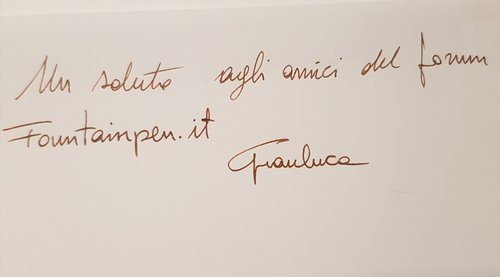 Un saluto agli amici del forum
Fountainpen.it
Gianluca